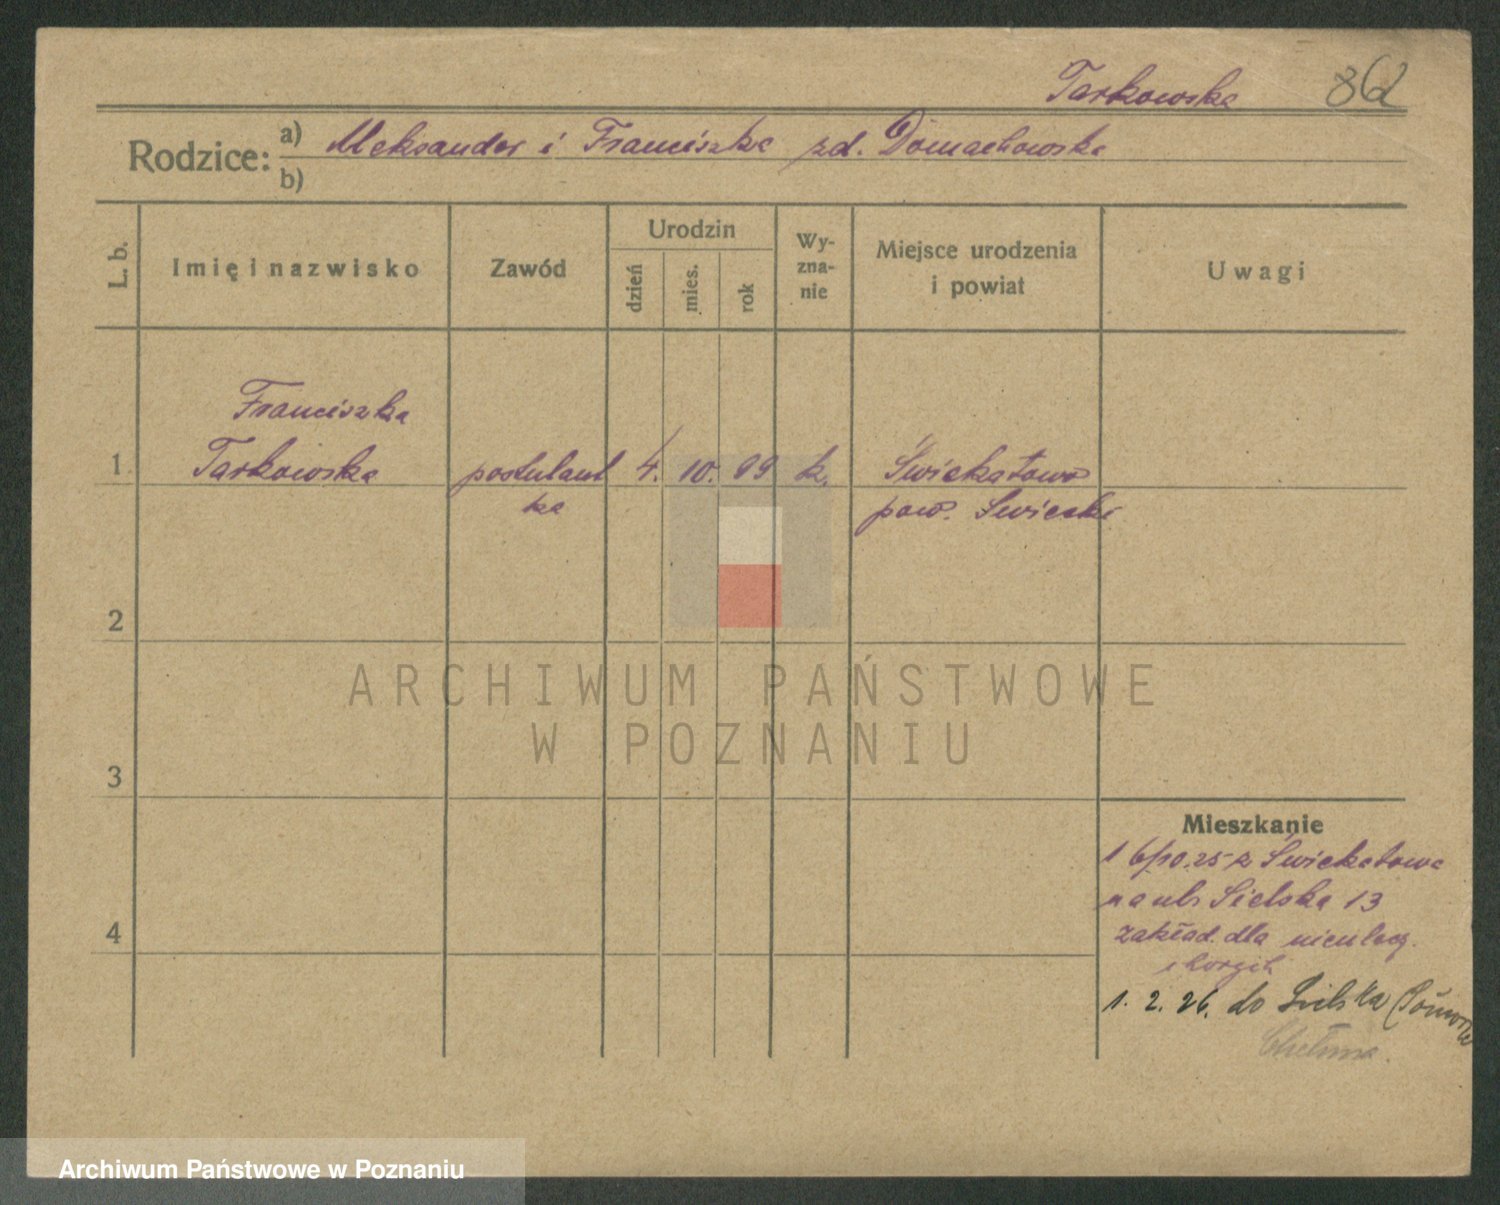 Tarkowska 862
Rodzice: a) Aleksander i Franciszka zd. Domachowska
b)
L. b. Imię i nazwisko Zawód Urodzin dzień mies. rok Wy-zna-nie Miejsce urodzenia i powiat Uwagi
Franciszka
1 Tarkowska postulant 4. 10. 99 k. Świekatowo
ka pow. Świecki
2
ARCHIWUM PAŃSTWOWE
W POZNANIU
3
Mieszkanie
1 6/10.25 z Świekatowa
na ul. Sielska 13
4 zakład. dla nieulecz.
chorych
1. 2. 26. do
Chełmna.
Archiwum Państwowe w Poznaniu